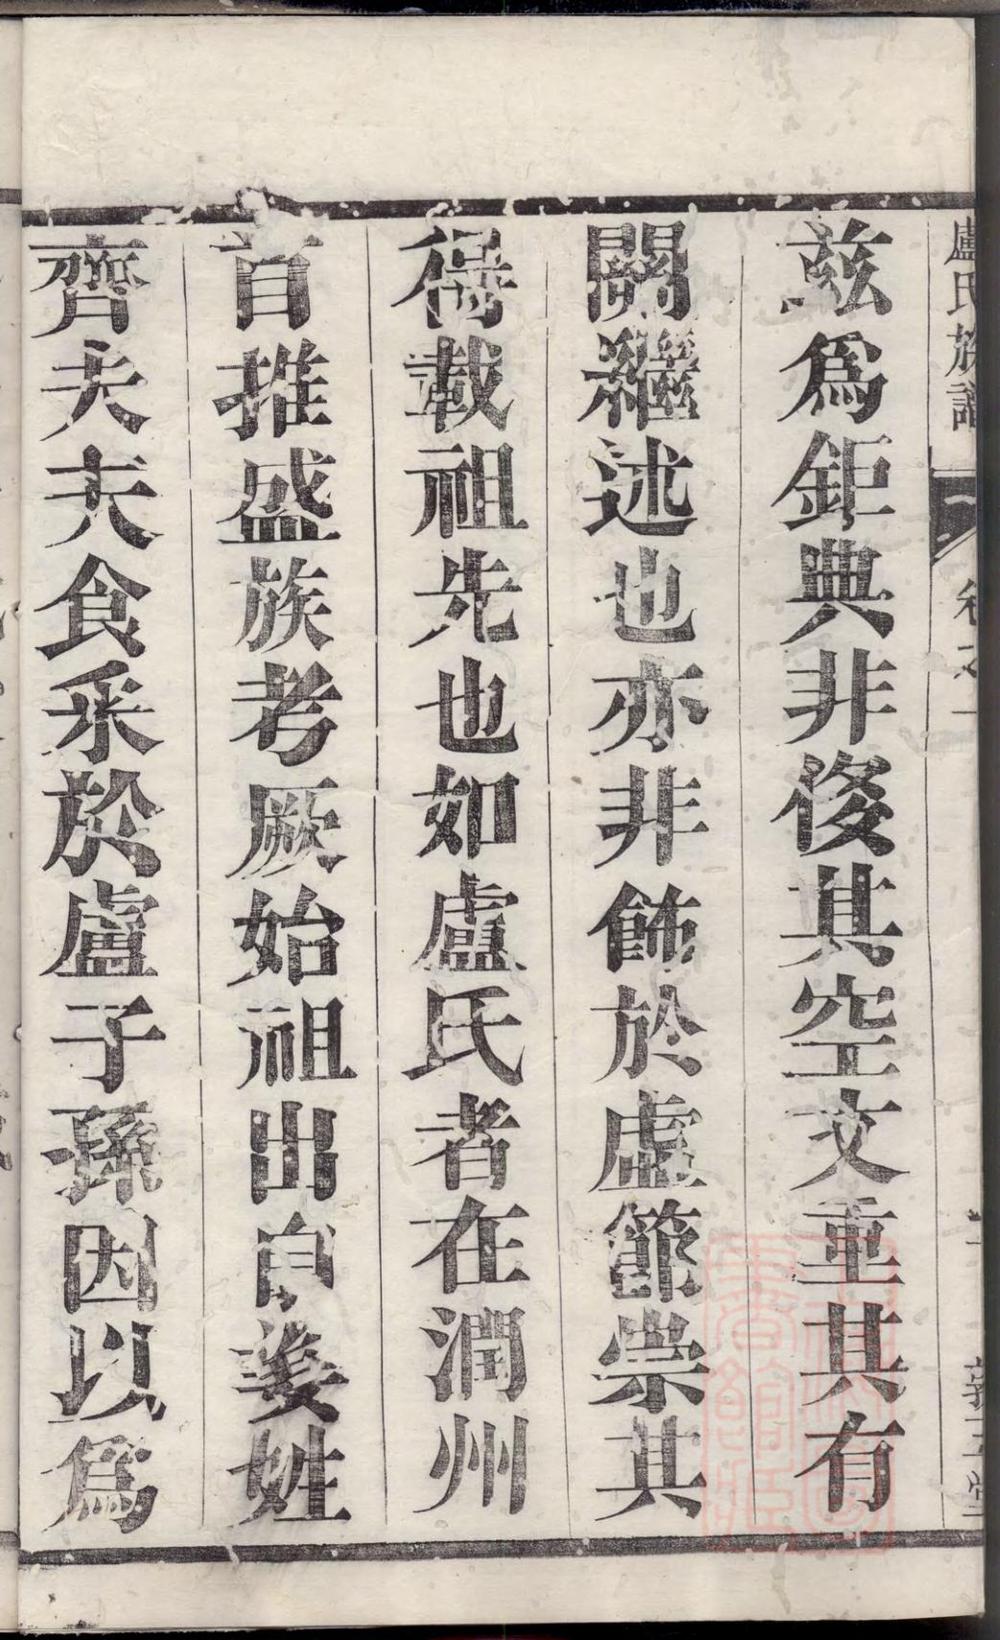 盧氏族譜
卷之一
茲爲鉅典非後其空文重其有
關繼述也亦非飾於虛節崇其
得載祖先也如盧氏者在潤州
首推盛族考厥始祖出自姜姓
齊大夫食采於盧子孫因以爲